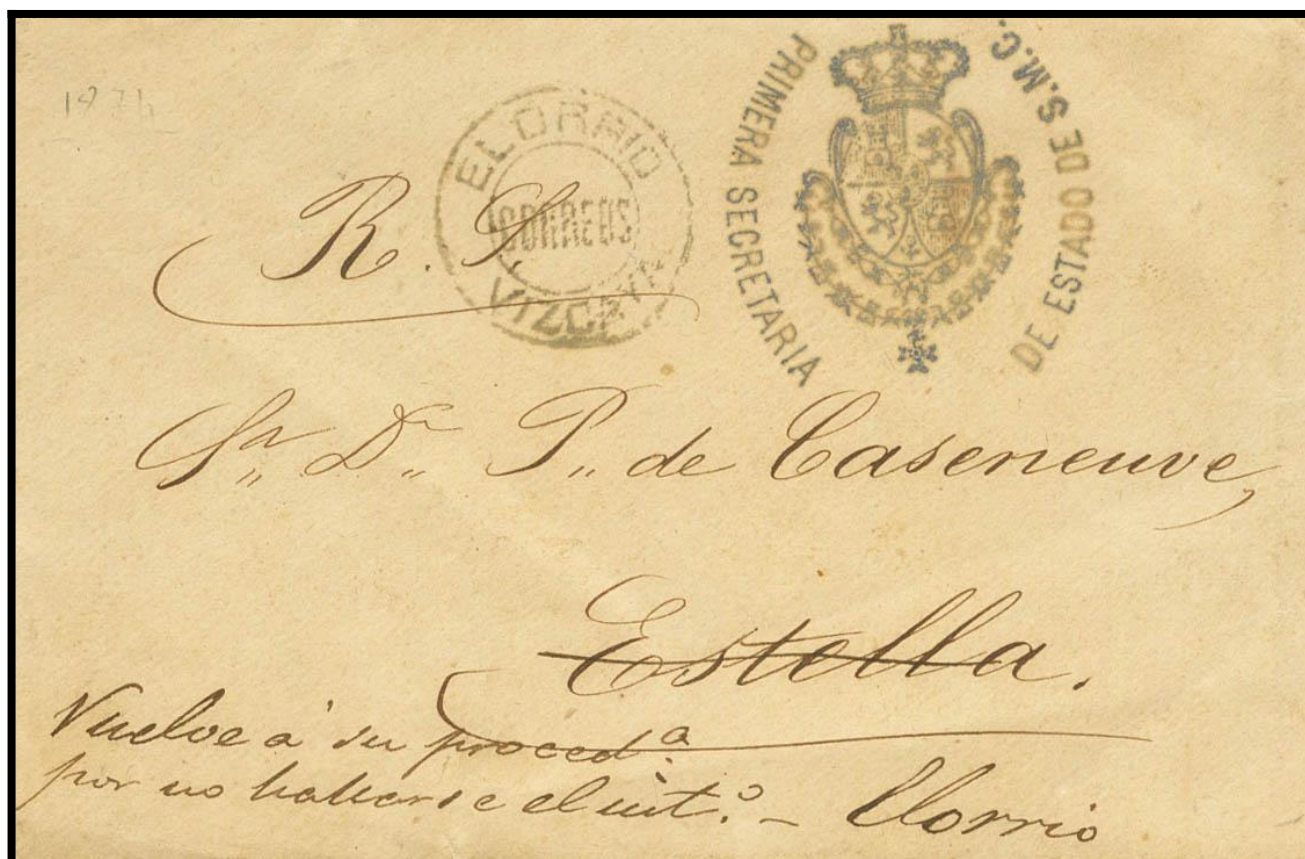 1874
ELORRIO
CORREOS
VIZCAYA
PRIMERA SECRETARIA
DE ESTADO DE S.M.C.
R. S.
Sr. Dn. P. de Caseneuve,
Estella.
Vuelve á su proced.a
por no hallarse el int.o - Elorrio